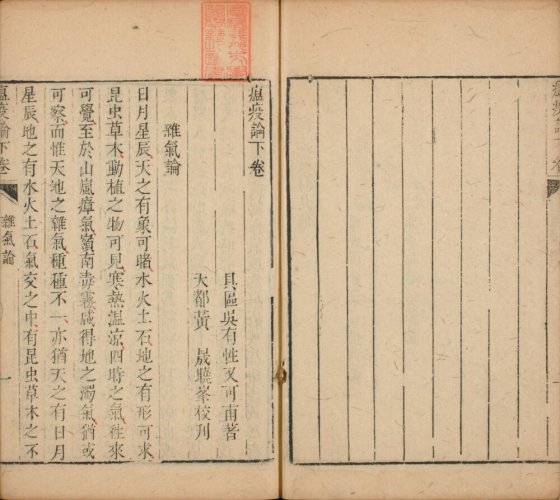 瘟疫論下卷
具區吳有性又可甫著
大都黃晟曉峯校刊
雜氣論
日月星辰天之有象可睹水火土石地之有形可求
昆虫草木動植之物可見寒熱溫涼四時之氣往來
可覺至於山嵐瘴氣嶺南毒霧咸得地之濁氣猶或
可察而惟天地之雜氣種種不一亦猶天之有日月
星辰地之有水火土石氣交之中有昆虫草木之不
瘟疫論下卷
雜氣論
一